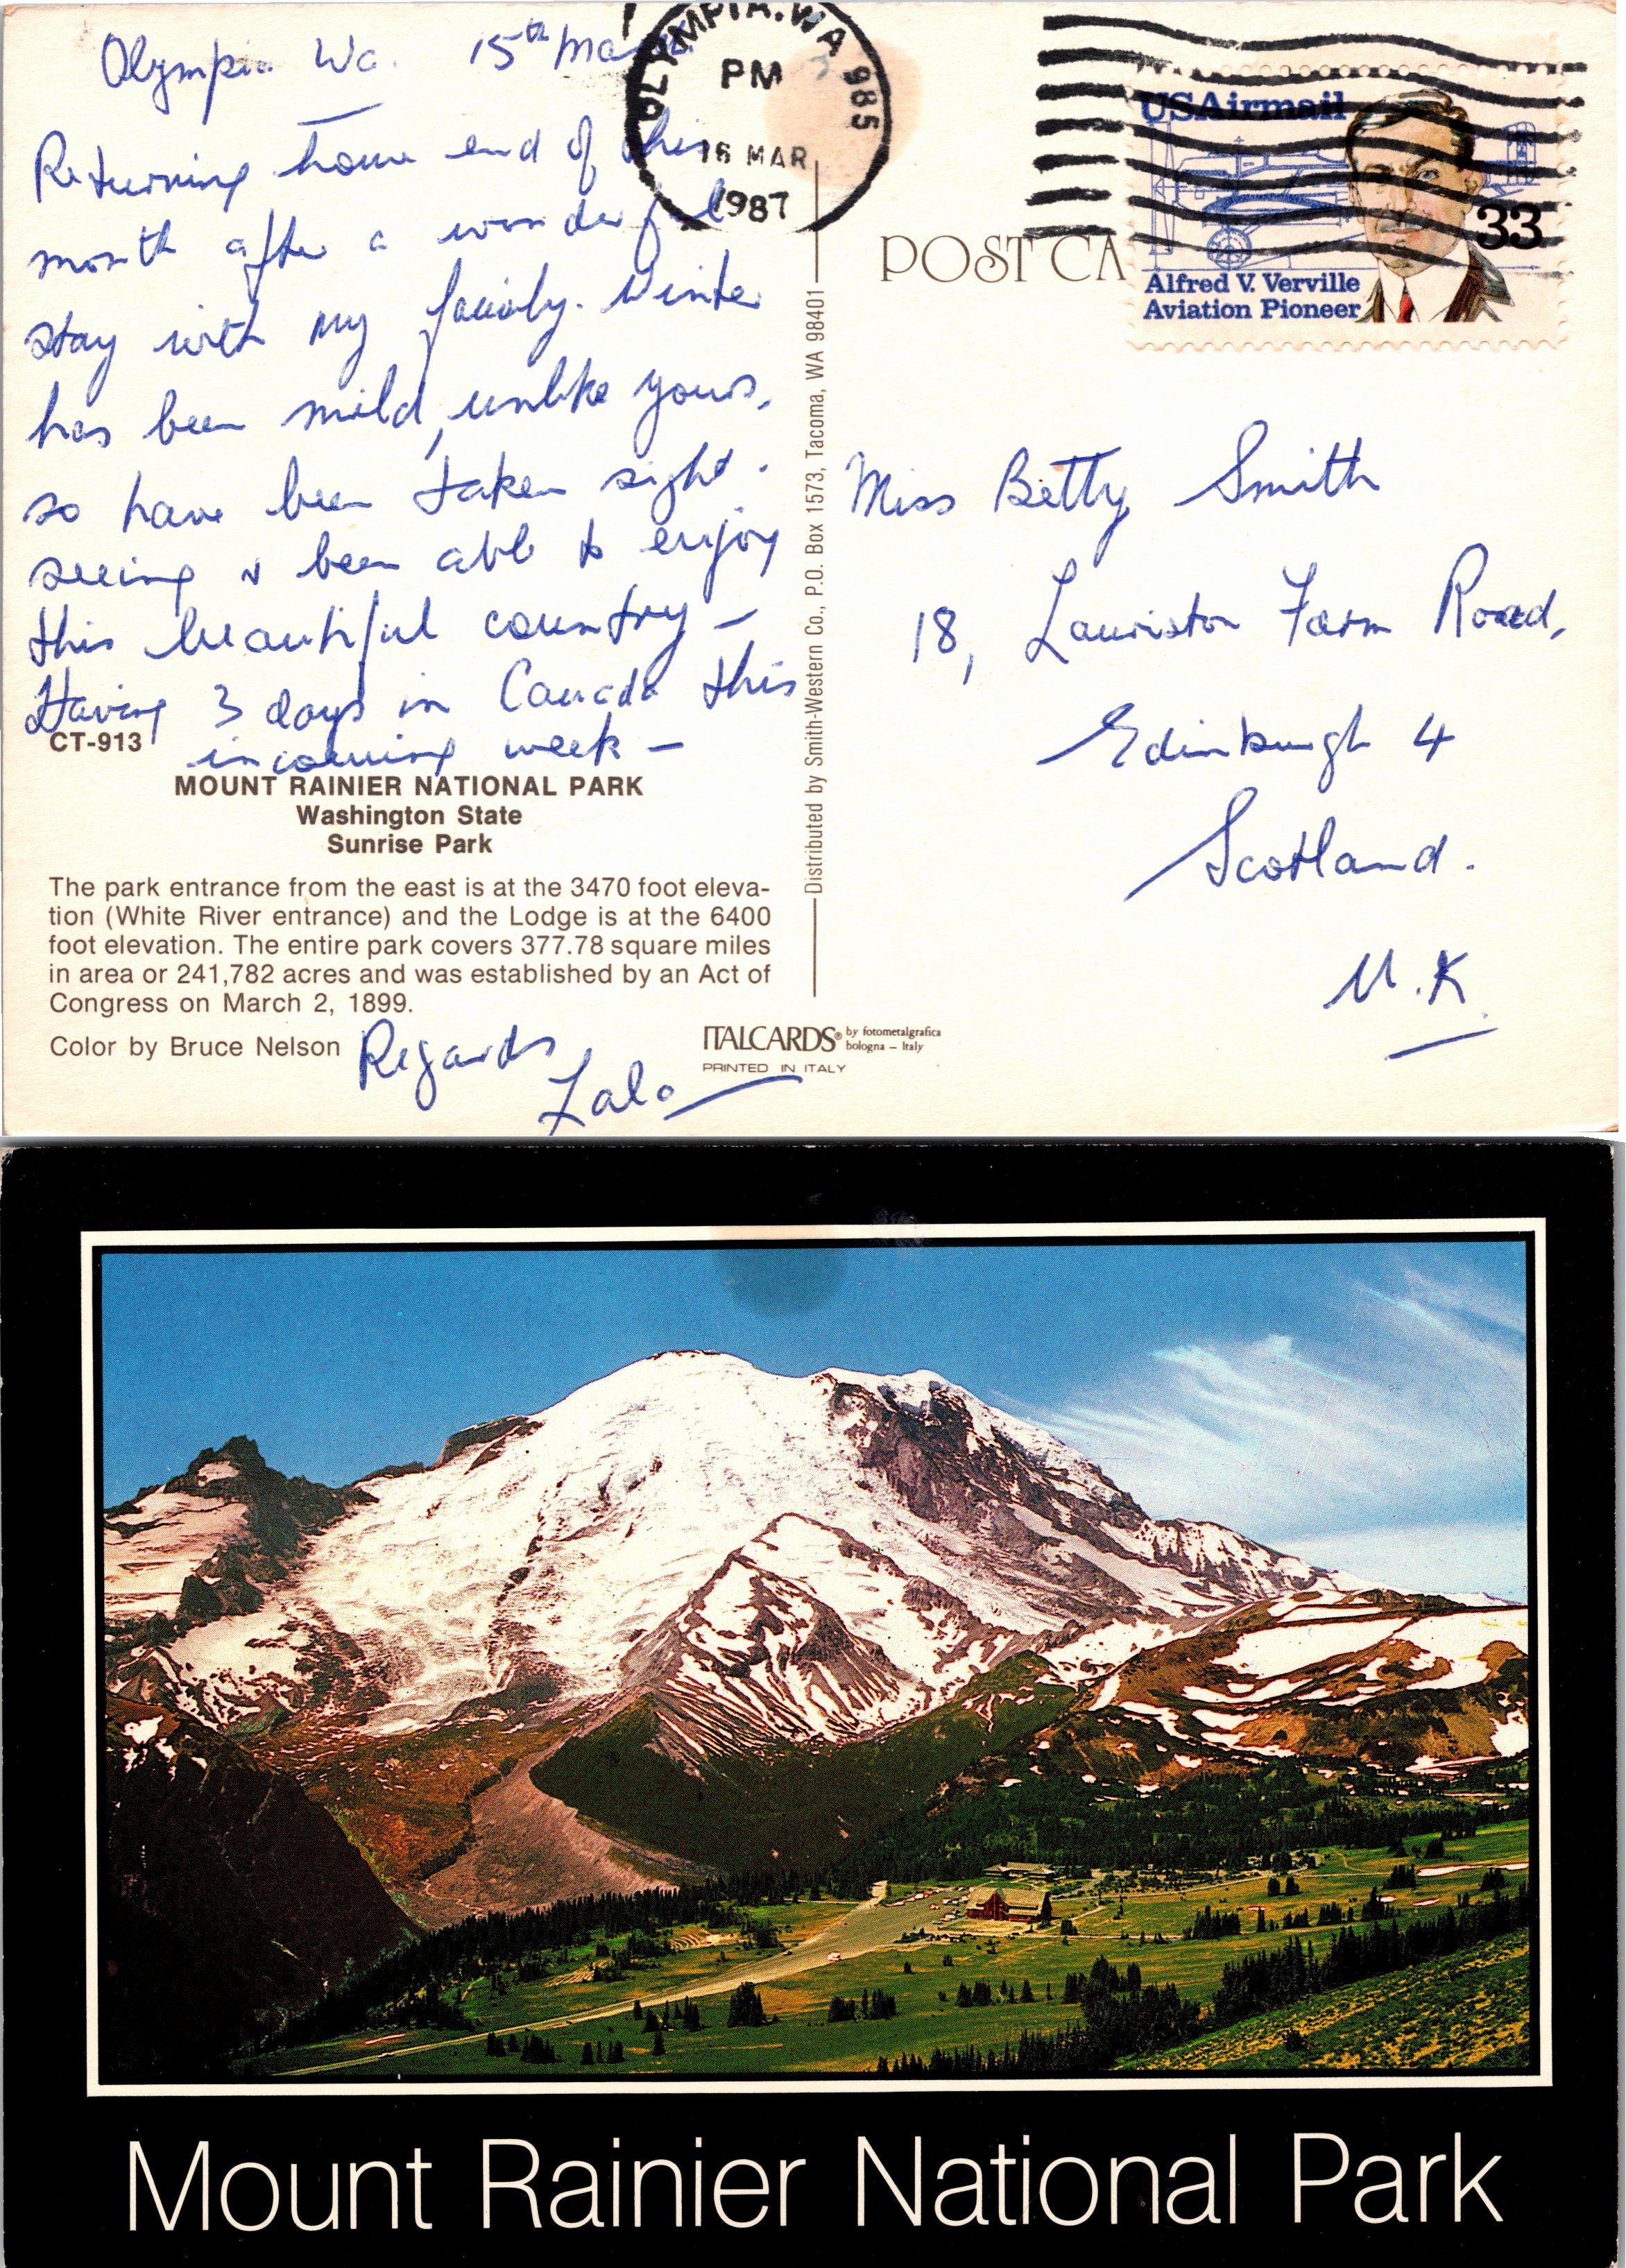 Olympia Wa. 15th March
Returning home end of this
month after a wonderful
stay with my family. Winter
has been mild, unlike yours,
so have been taken sight-
seeing & been able to enjoy
this beautiful country —
Having 3 days in Canada this
incoming week —
CT-913
MOUNT RAINIER NATIONAL PARK
Washington State
Sunrise Park
The park entrance from the east is at the 3470 foot eleva-
tion (White River entrance) and the Lodge is at the 6400
foot elevation. The entire park covers 377.78 square miles
in area or 241,782 acres and was established by an Act of
Congress on March 2, 1899.
Color by Bruce Nelson
Regards
Lalo
OLYMPIA, WA 985
PM
16 MAR
1987
USAirmail
33
Alfred V. Verville
Aviation Pioneer
POST CA
Distributed by Smith-Western Co., P.O. Box 1573, Tacoma, WA 98401
Miss Betty Smith
18, Lauriston Farm Road,
Edinburgh 4
Scotland.
U.K
ITALCARDS® by fotometalgrafica
bologna – Italy
PRINTED IN ITALY
Mount Rainier National Park